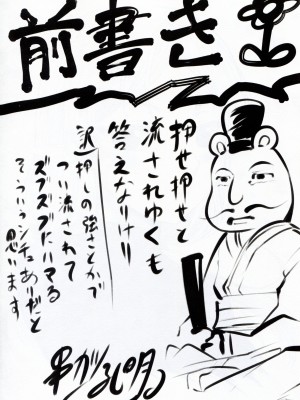 前書き
押せ押せと
流されゆくも
答えなりけり
訳)押しの強さとかで
つい流されて
ズブズブにハマる
そういうシチュありだと
思います
串がつ孔明